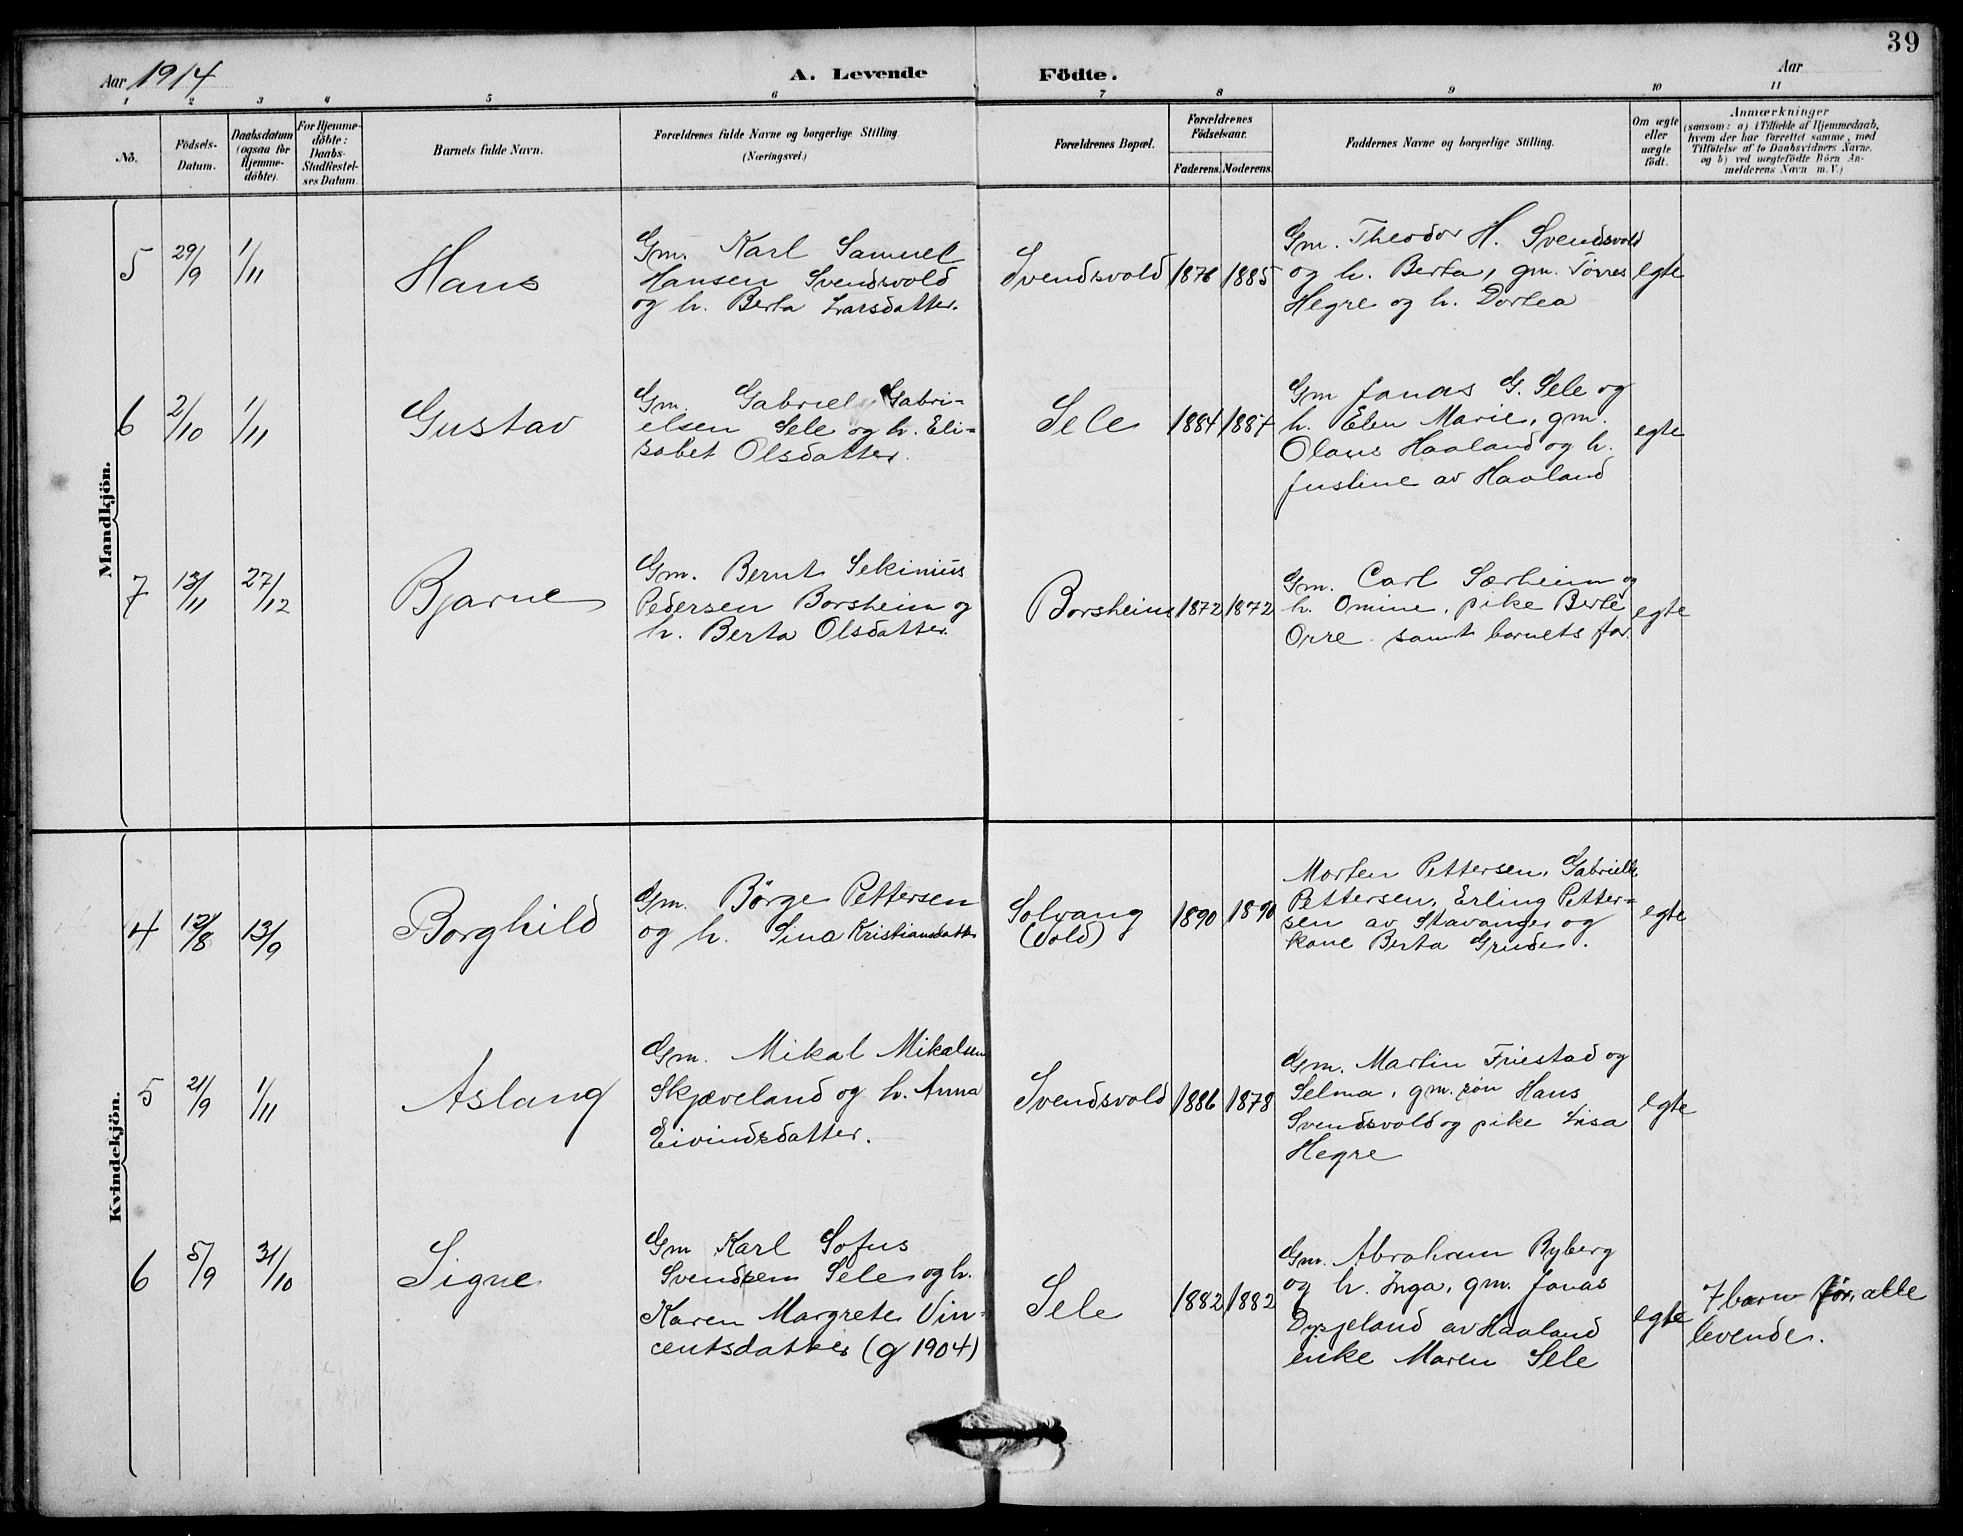 39
Aar 1914
A. Levende Födte.
Aar
1 2 3 4 5 6 7 8 9 10 11
No.
Födsels-Datum.
Daabsdatum (ogsaa for Hjemmedöbte).
For Hjemmedöbte: Daabs-Stadfæstelses Datum.
Barnets fulde Navn.
Forældrenes fulde Navne og borgerlige Stilling.
(Næringsvei.)
Forældrenes Bopæl.
Forældrenes Födselsaar.
Faderens. Moderens.
Faddernes Navne og borgerlige Stilling.
Om ægte eller uægte födt.
Anmærkninger
(saasom: a) i Tilfælde af Hjemmedaab,
hvem der har forrettet samme, med
Tilföielse af to Daabsvidners Navne,
og b) ved uægtefödte Börn Anmelderens Navn m. V.)
Mandkjön.
5 29/9 1/11 Hans
Gm. Karl Samuel
Hansen Svendsvold
og h. Berta Larsdatter.
Svendsvold 1876 1885
Gm. Theodor H. Svendsvold
og h. Berta, gm. Tørres
Hegre og h. Dortea
egte
6 2/10 1/11 Gustav
Gm. Gabriel Gabri-
elsen Sele og h. Eli-
sabet Olsdatter.
Sele 1884 1887
Gm Jonas G. Sele og
h. Elen Marie, gm.
Olaus Haaland og h.
Justine av Haaland
egte
7 13/11 27/12 Bjarne
Gm. Bernt Sekinius
Pedersen Borsheim og
h. Berta Olsdatter.
Borsheim 1872 1872
Gm. Carl Særheim og
h. Omine, pike Berte
Orre samt barnets far.
egte
Kvindekjön.
4 12/8 13/9 Borghild
Gm. Börge Pettersen
og h. Sina Kristiansdatter
Solvang
(Vold)
1890 1890
Morten Pettersen, Gabrielle
Pettersen, Erling Petter-
sen av Stavanger og
kone Berta Grude.
egte
5 21/9 1/11 Aslaug
Gm. Mikal Mikalsen
Skjæveland og h. Anna
Eivindsdatter.
Svendsvold 1886 1878
Gm. Martin Friestad og
Selma, gm. søn Hans
Svendsvold og pike Lisa
Hegre
egte
6 5/9 31/10 Signe
Gm Karl Sofus
Svendsen Sele og h.
Karen Margrete Vin-
centsdatter (g 1904)
Sele 1882 1882
Gm. Abraham Ryberg
og h. Inga, gm. Jonas
Dysjeland av Haaland
enke Maren Sele
egte
7 barn før, alle
levende.